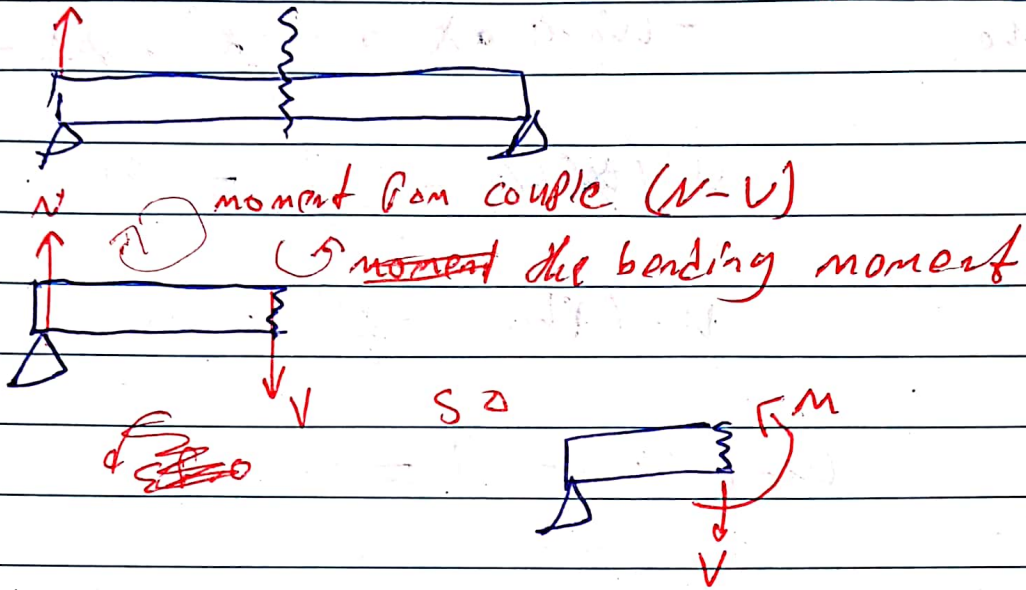 moment from couple (N-V)
N
moment the bending moment
V
so
M
V